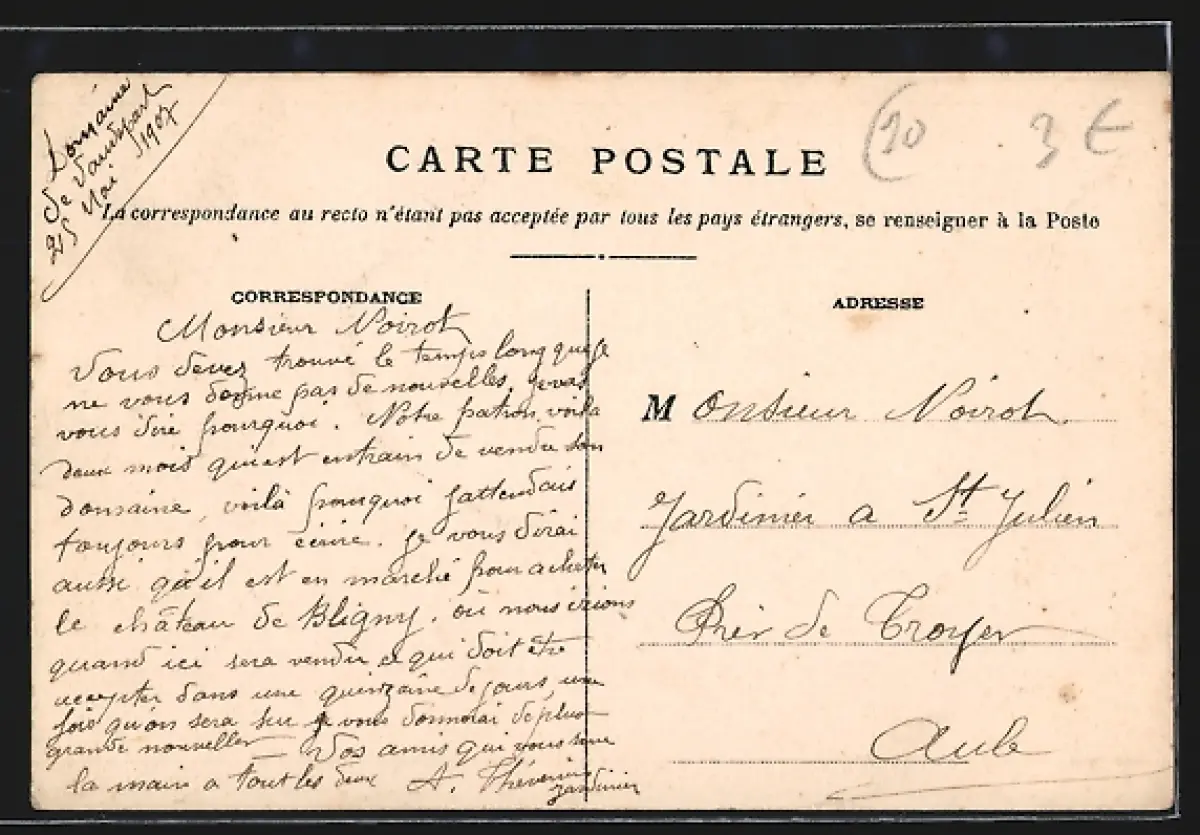 Domaine
de Vaudepart
25 Mai 1907
(20
3 €
CARTE POSTALE
La correspondance au recto n'étant pas acceptée par tous les pays étrangers, se renseigner à la Poste
CORRESPONDANCE
Monsieur Noirot
Vous devez trouvé le temps long que je
ne vous donne pas de nouvelles, je vais
vous dire pourquoi. Notre patron, voila
deux mois qu'est entrain de vendre son
domaine, voilà pourquoi j'attendais
toujours pour écrire. Je vous dirai
aussi qu'il est en marché pour acheter
le château de Bligny, où nous irions
quand ici sera vendu ce qui doit être
accepter dans une quinzaine de jours, une
fois qu'on sera sur je vous donnerai de plus
grande nouvelles Vos amis qui vous serre
la main a tout les deux A. Thévenin
jardinier
ADRESSE
Monsieur Noirot
Jardinier a St Julien
Près de Troyes
Aube